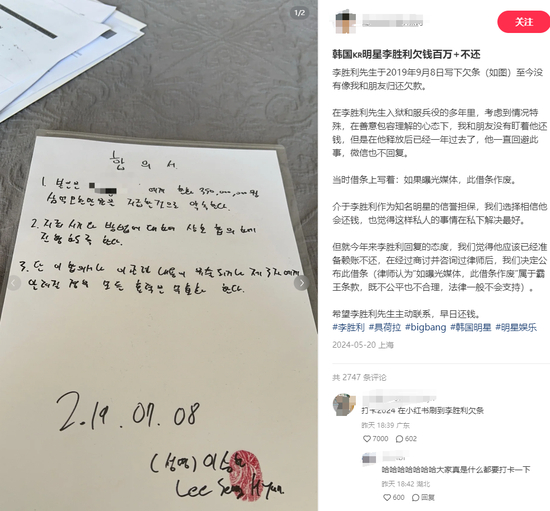 1/2
합의서
1. 본인은
여게 한화 350,000,000원
지급할것으로 약속한다.
2. 지급시기와 방법에 대하여 상호 협의하에
진행하도록 한다.
3. 단 이 합의서나 이 관련 내용이 제3자에게
알려질 경우 모든 효력은 한다.
2.19.07.08
(성명) 이승현
Lee Seung Hyun
关注
韩国KR明星李胜利欠钱百万+不还
李胜利先生于2019年9月8日写下欠条（如图）至今没
有像我和朋友归还欠款。
在李胜利先生入狱和服兵役的多年里，考虑到情况特
殊，在善意包容理解的心态下，我和朋友没有盯着他还
钱，但是在他释放后已经一年过去了，他一直回避此
事，微信也不回复。
当时借条上写着：如果曝光媒体，此借条作废。
介于李胜利作为知名明星的信誉担保，我们选择相信他
会还钱，也觉得这样私人的事情在私下解决最好。
但就今年来李胜利回复的态度，我们觉得他应该已经准
备赖账不还，在经过商讨并咨询过律师后，我们决定公
布此借条（律师认为“如曝光媒体，此借条作废”属于霸
王条款，既不公平也不合理，法律一般不会支持）。
希望李胜利先生主动联系，早日还钱。
#李胜利 #具荷拉 #bigbang #韩国明星 #明星娱乐
2024-05-20 上海
共 2747 条评论
打卡2024 在小红书刷到李胜利欠条
昨天 18:39 广东
7000 602
哈哈哈哈哈哈哈大家真是什么都要打卡一下
昨天 18:42 湖北
600 回复